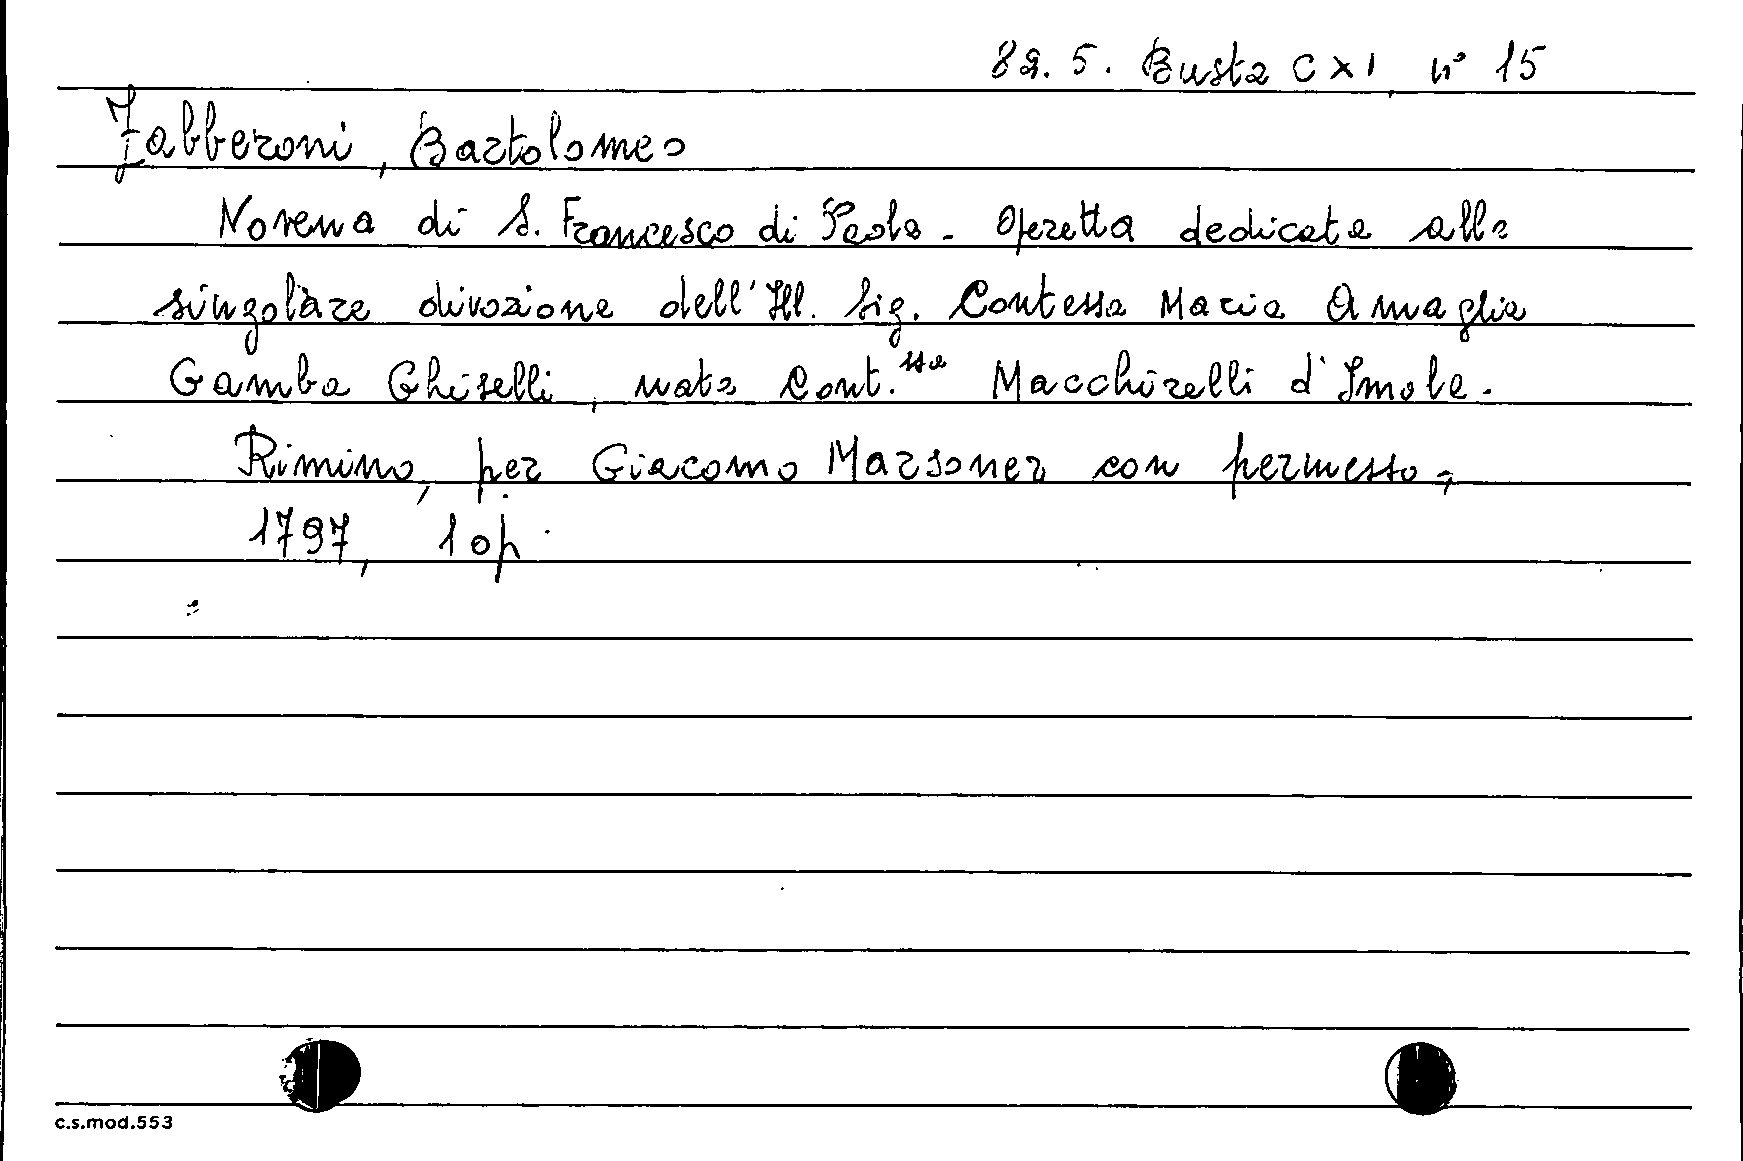 82. 5. Busta CXI, n° 15
Fabberoni, Bartolomeo
Novena di S. Francesco di Paola - Operetta dedicata alla
singolare divozione dell'Ill. Sig. Contessa Maria Amaglia
Gamba Ghiselli, nata Cont.ssa Macchirelli d'Imola.
Rimino, per Giacomo Marsoner con permesso,
1797, 1 op.
c.s.mod.553